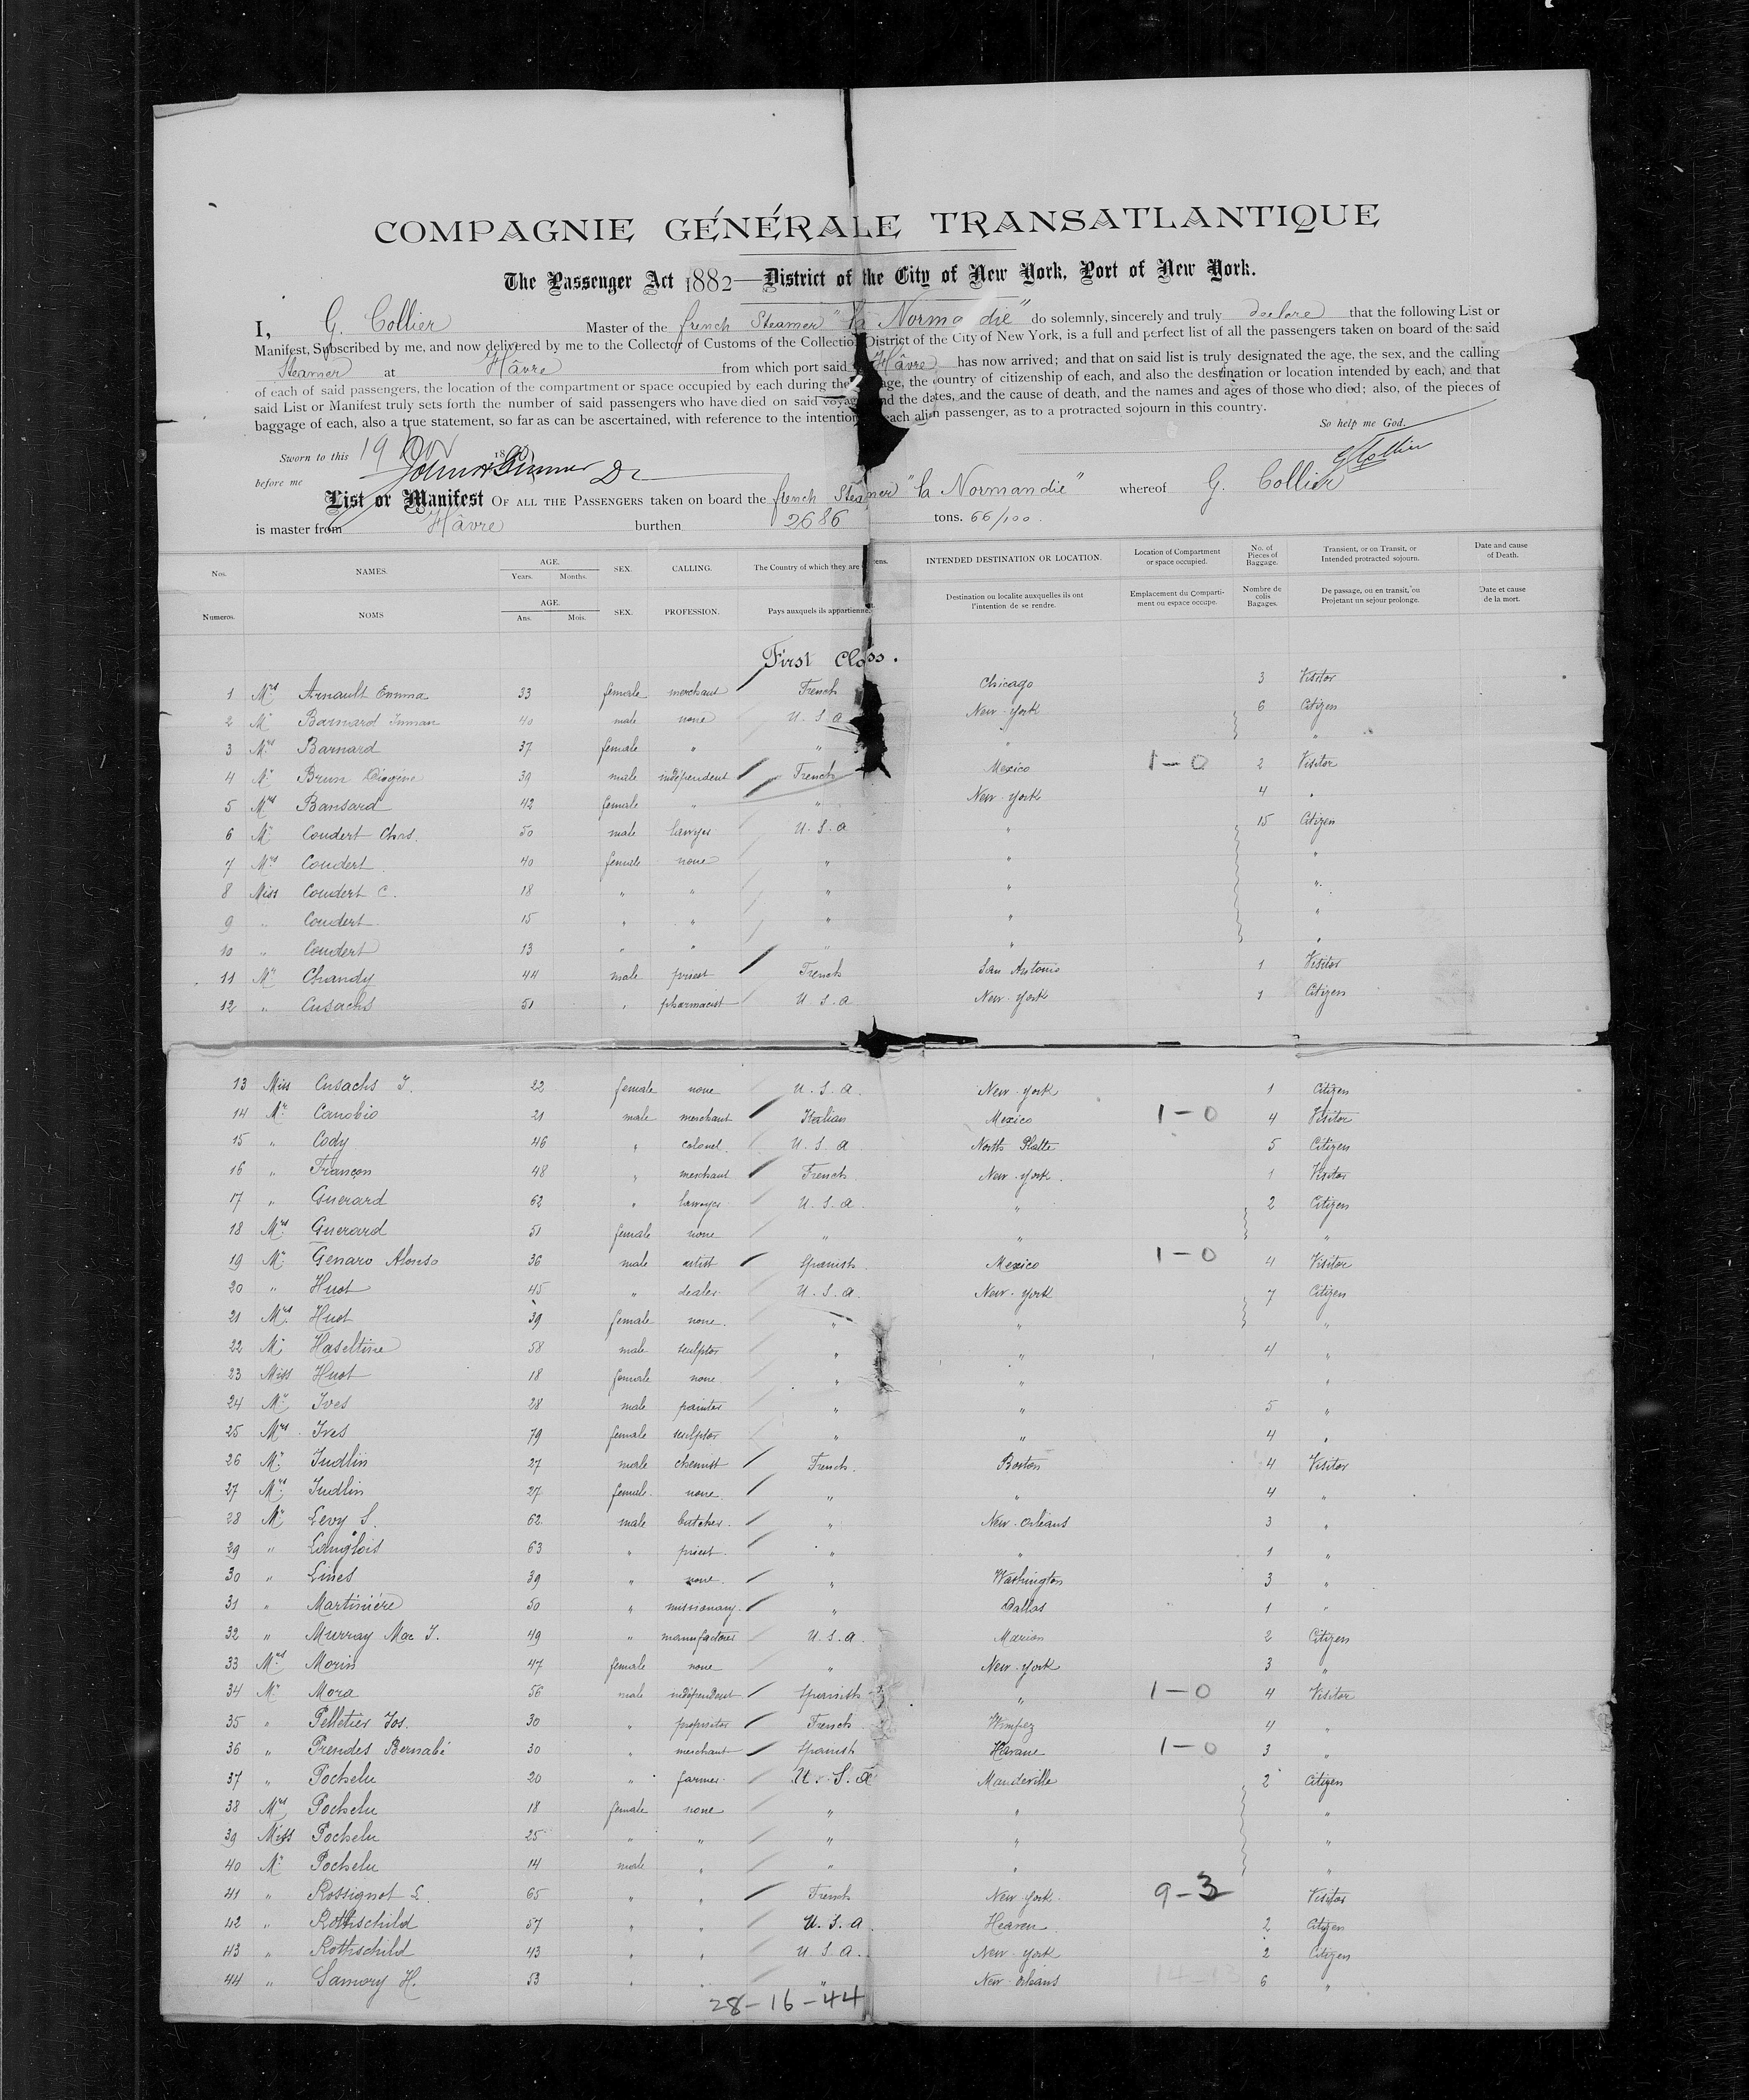 COMPAGNIE GÉNÉRALE TRANSATLANTIQUE
The Passenger Act 1882—District of the City of New York, Port of New York.
I, G. Collier Master of the french Steamer "la Normandie" do solemnly, sincerely and truly declare that the following List or
Manifest, Subscribed by me, and now delivered by me to the Collector of Customs of the Collection District of the City of New York, is a full and perfect list of all the passengers taken on board of the said
Steamer at Hâvre from which port said Hâvre has now arrived; and that on said list is truly designated the age, the sex, and the calling
of each of said passengers, the location of the compartment or space occupied by each during the age, the country of citizenship of each, and also the destination or location intended by each, and that
said List or Manifest truly sets forth the number of said passengers who have died on said voyage and the dates, and the cause of death, and the names and ages of those who died; also, of the pieces of
baggage of each, also a true statement, so far as can be ascertained, with reference to the intention each alien passenger, as to a protracted sojourn in this country.
So help me God.
Sworn to this 19 Nov 18
G Collier
before me
List or Manifest OF ALL THE PASSENGERS taken on board the french Steamer "la Normandie" whereof G. Collier
is master from Hâvre burthen 2686 tons. 66/100.
Nos. NAMES. AGE. Years. Months. SEX. CALLING. The Country of which they are ens. INTENDED DESTINATION OR LOCATION. Location of Compartment or space occupied. No. of Pieces of Baggage. Transient, or on Transit, or Intended protracted sojourn. Date and cause of Death.
Numeros. NOMS AGE. Ans. Mois. SEX. PROFESSION. Pays auxquels ils appartienne. Destination ou localite auxquelles ils ont l'intention de se rendre. Emplacement du Compartiment ou espace occupe. Nombre de colis Bagages. De passage, ou en transit, ou Projetant un sejour prolonge. Date et cause de la mort.
First Class.
1 Mrs Arnault Emma 33 female merchant French Chicago 3 Visitor
2 Mr Barnard Inman 40 male none U.S.a New-york 6 Citizen
3 Mrs Barnard 37 female " " " "
4 Mr Brun 39 male indépendent French Mexico 1-0 2 Visitor
5 Mrs Bansard 42 female " " New-york 4 "
6 Mr Coudert Chas. 50 male lawyer U.S.a " 15 Citizen
7 Mrs Coudert 40 female none " " "
8 Miss Coudert C. 18 " " " " "
9 " Coudert 15 " " " " "
10 " Coudert 13 " " " " "
11 Mr Chandy 44 male priest French San Antonio 1 Visitor
12 " Cusachs 51 " pharmacist U.S.a New-york 1 Citizen
13 Miss Cusachs J. 22 female none U.S.a. New-york 1 Citizen
14 Mr Canobio 21 male merchant Italian Mexico 1-0 4 Visitor
15 " Cody 46 " colonel U.S.a North Platte 5 Citizen
16 " Françon 48 " merchant French New-york. 1 Visitor
17 " Guerard 62 " lawyer U.S.a. " 2 Citizen
18 Mrs Guerard 51 female none " " "
19 Mr Genaro Alonso 36 male artist Spanish Mexico 1-0 4 Visitor
20 " Huot 45 " dealer U.S.a. New-york 7 Citizen
21 Mrs Huot 39 female none. " " "
22 Mr Haseltine 58 male sculptor " " 4 "
23 Miss Huot 18 female none " " "
24 Mr Ives 28 male painter " " 5 "
25 Mrs Ives 79 female sculptor " " 4 "
26 Mr Judlin 27 male chemist French. Boston 4 Visitor
27 Mrs Judlin 27 female. none. " " 4 "
28 Mr Levy S. 62 male butcher. " New-orléans 3 "
29 " Langlois 63 " priest. " " 1 "
30 " Lines 39 " none. " Washington 3 "
31 " Martinière 50 " missionary. " Dallas 1 "
32 " Murray Mac J. 49 " manufactorer U.S.a. Marion 2 Citizen
33 Mrs Morin 47 female none " New-york 3 "
34 Mr Mora 56 male indépendent Spanish " 1-0 4 Visitor
35 " Pelletier Jos. 30 " propriétor French Winpeg 4 "
36 " Prendes Bernabé 30 " merchant Spanish Havane 1-0 3 "
37 " Pochelu 20 " farmer U.S.a Mandeville 2 Citizen
38 Mrs Pochelu 18 female none " " "
39 Miss Pochelu 25 " " " " "
40 Mr Pochelu 14 male " " " "
41 " Rossignol L. 65 " " French New-york. 9-3 Visitor
42 " Rothschild 57 " " U.S.a. 2 Citizen
43 " Rothschild 43 " " U.S.a. New-york 2 Citizen
44 " Samory H. 53 " " " New-orléans 6 "
28-16-44